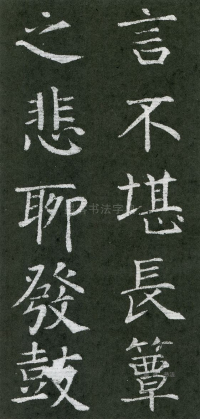 言不堪長簟
之悲聊發鼓